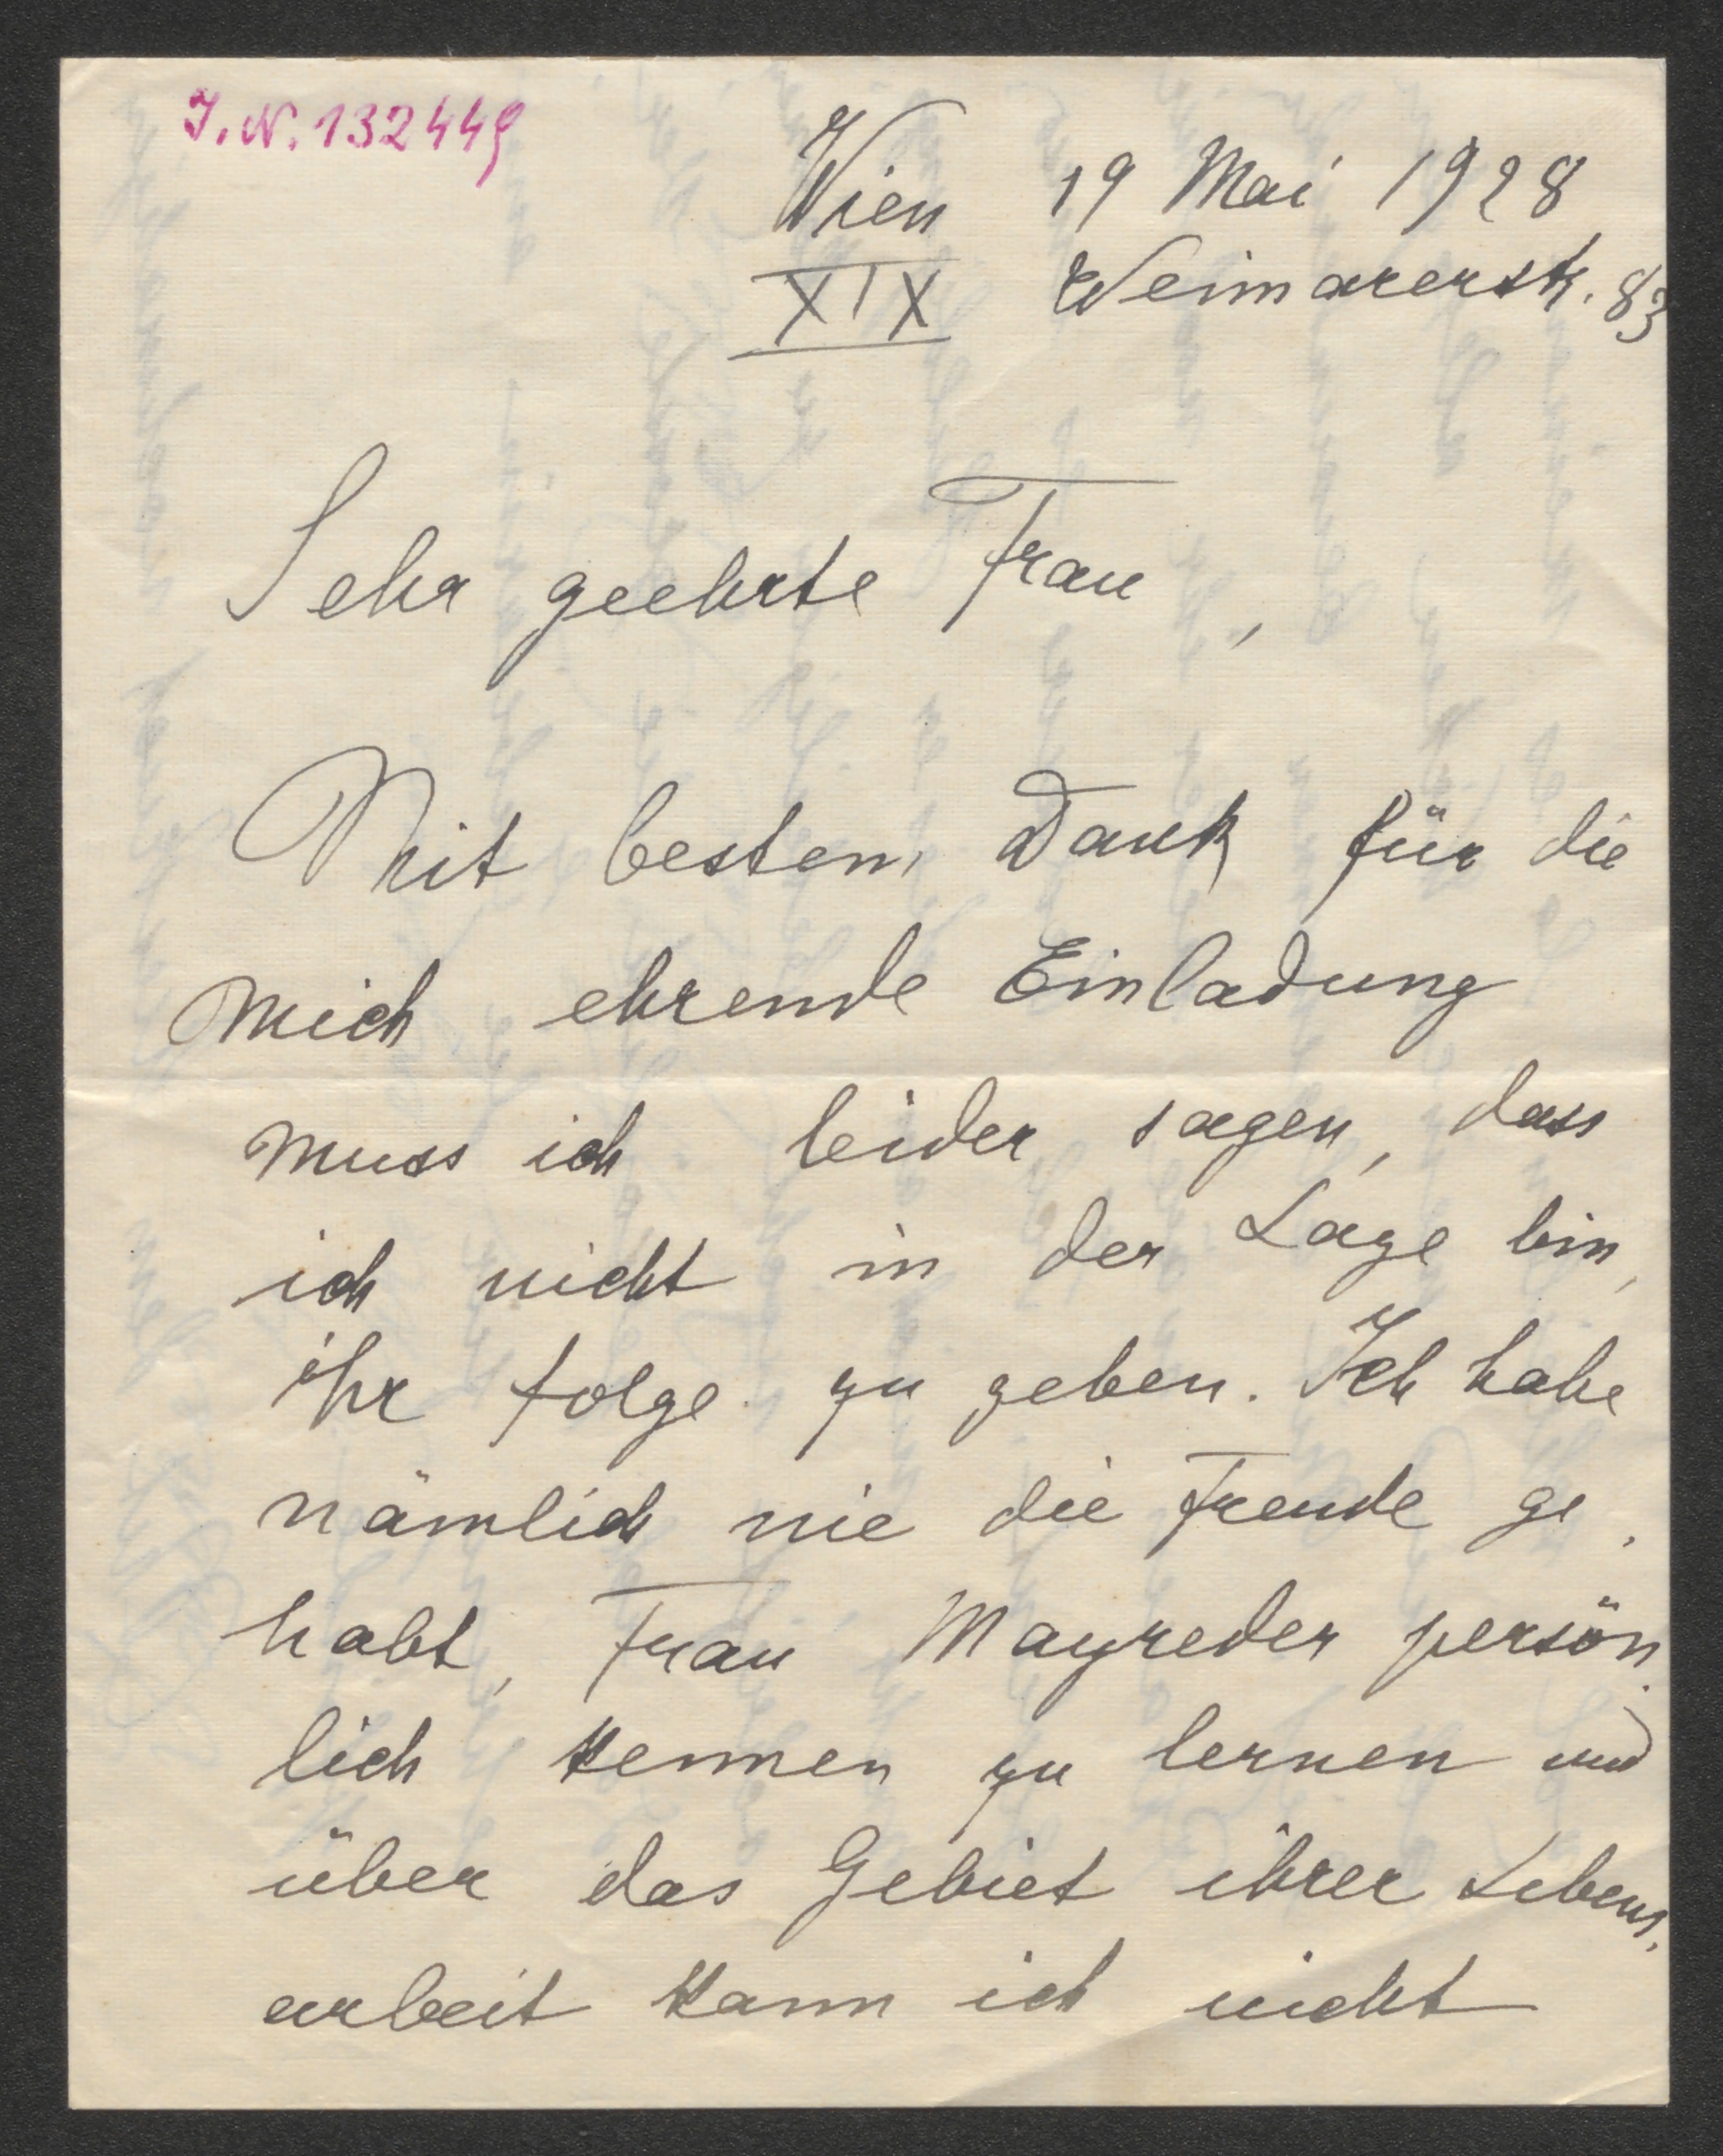 J.N. 132449
Wien 19 Mai 1928
XIX Weimarerstr. 83
Sehr geehrte Frau,
Mit bestem Dank für die
mich ehrende Einladung
muss ich leider sagen, dass
ich nicht in der Lage bin,
ihr folge zu geben. Ich habe
nämlich nie die Freude ge-
habt, Frau Mayreder persön-
lich kennen zu lernen und
über das Gebiet ihrer Lebens-
arbeit kann ich nicht